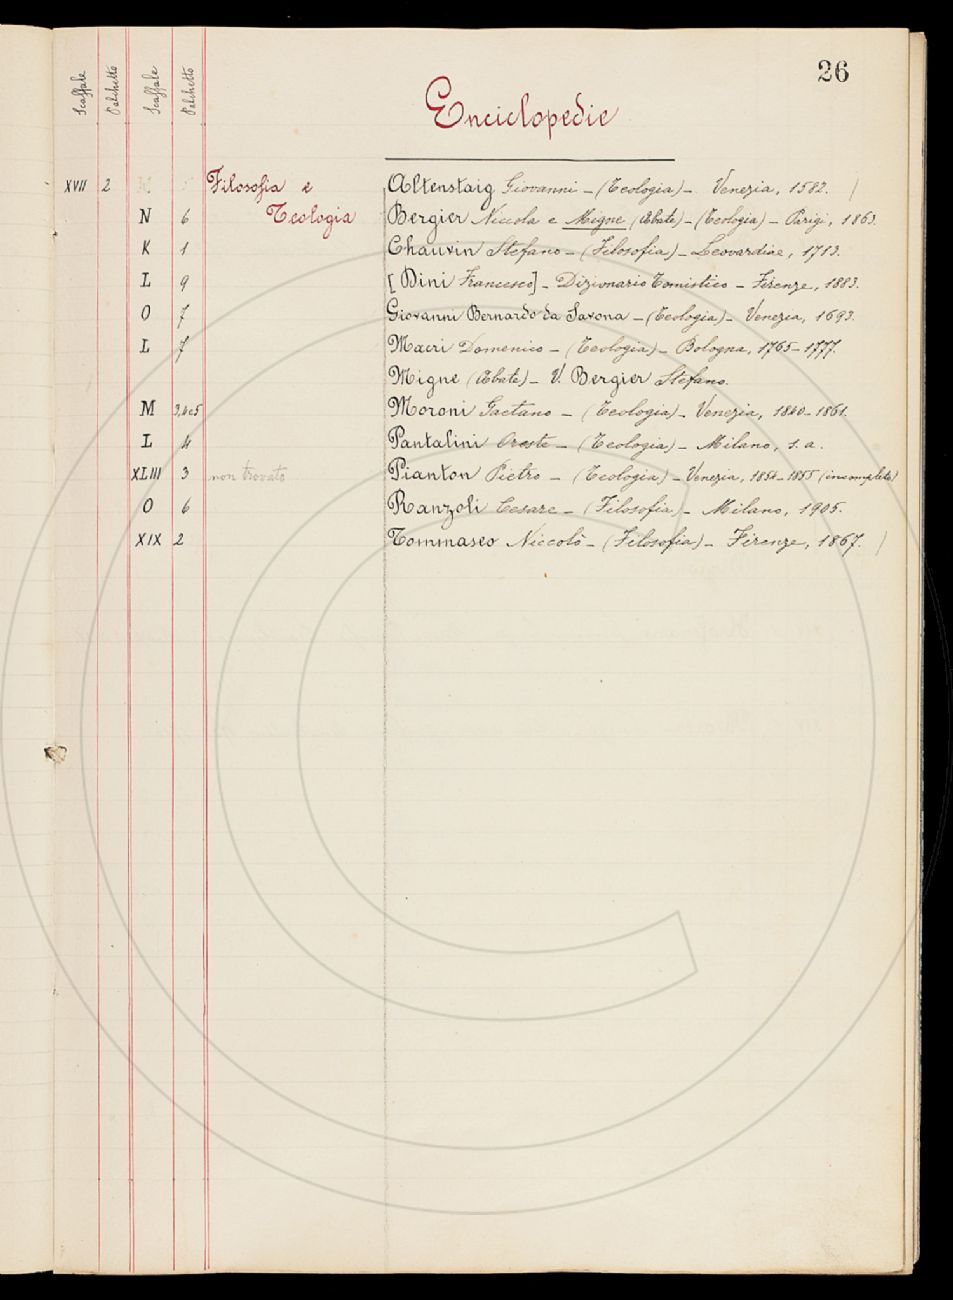 26
Scaffale Palchetto Scaffale Palchetto
Enciclopedie
XVII 2 Filosofia e Altenstaig Giovanni - (Teologia) - Venezia, 1582. /
N 6 Teologia Bergier Niccola e Migne (Abate) - (Teologia) - Parigi, 1863.
K 1 Chauvin Stefano - (Filosofia) - Leovardiae, 1713.
L 9 [Dini Francesco] - Dizionario Tomistico - Firenze, 1883.
O 7 Giovanni Bernardo da Savona - (Teologia) - Venezia, 1693.
L 7 Macri Domenico - (Teologia) - Bologna, 1765-1777.
Migne (Abate) - V. Bergier Stefano.
M 3,4e5 Moroni Gaetano - (Teologia) - Venezia, 1840-1861.
L 4 Pantalini Oreste - (Teologia) - Milano, s. a.
XLIII 3 non trovato Pianton Pietro - (Teologia) - Venezia, 1854-1855 (incompleta)
O 6 Ranzoli Cesare - (Filosofia) - Milano, 1905.
XIX 2 Tommaseo Niccolò - (Filosofia) - Firenze, 1867. /